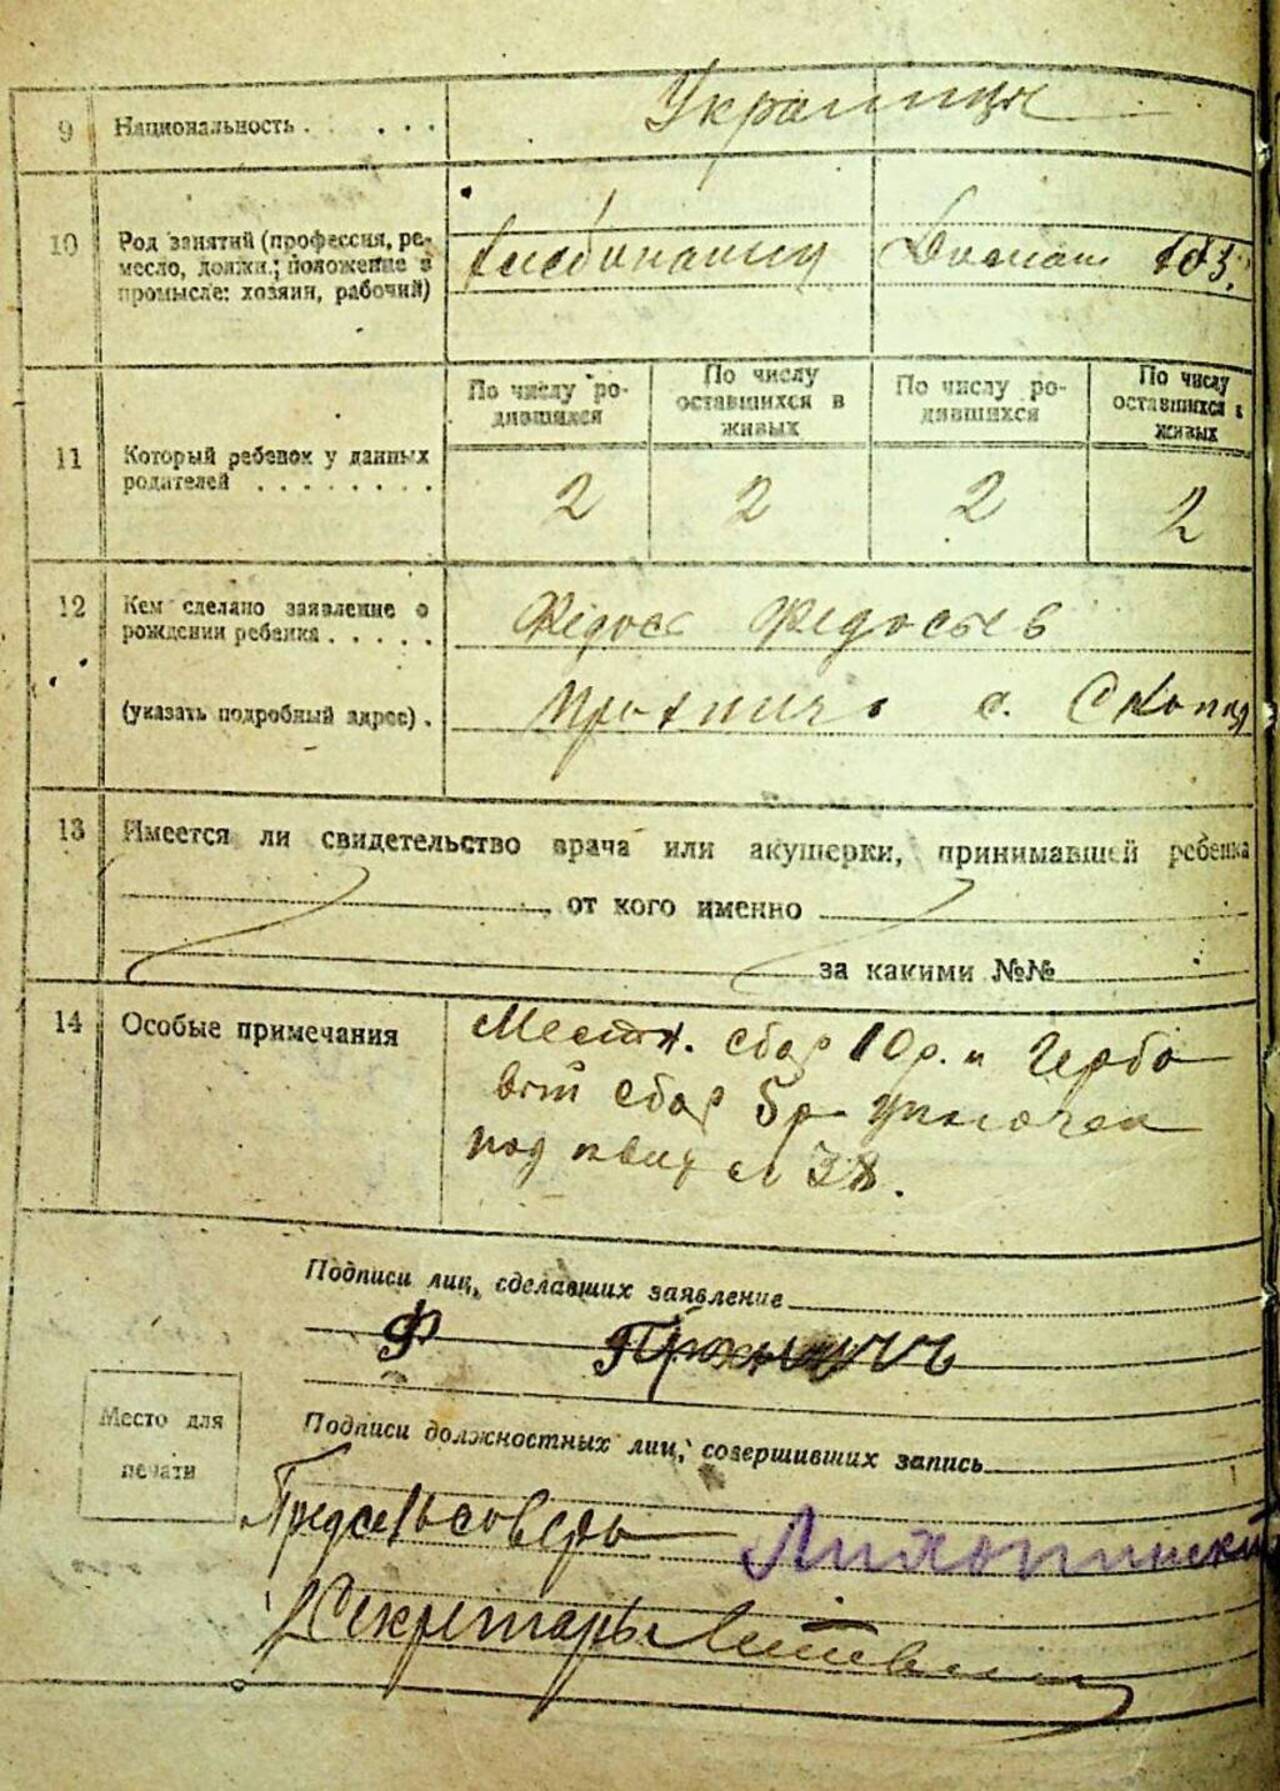 9 Национальность . . . . . Украинцы
10 Род занятий (профессия, ре-
месло, должн.; положение в
промысле: хозяин, рабочий)
Хлебопашец Домаш. хоз.
По числу ро-
дившихся
По числу
оставшихся в
живых
По числу ро-
дившихся
По числу
оставшихся в
живых
11 Который ребенок у данных
родителей . . . . . . . .
2 2 2 2
12 Кем сделано заявление о
рождении ребенка . . . . .
Федос Федосьев
(указать подробный адрес) .
с.
13 Имеется ли свидетельство врача или акушерки, принимавшей ребенка
от кого именно
за какими №№
14 Особые примечания
Местн. сбор 10 р. и Гербо
вый сбор 5 р уплочен
под квит № 38.
Подписи лиц, сделавших заявление
Ф
Место для
печати
Подписи должностных лиц, совершивших запись
Предсельсоветы
Секретарь